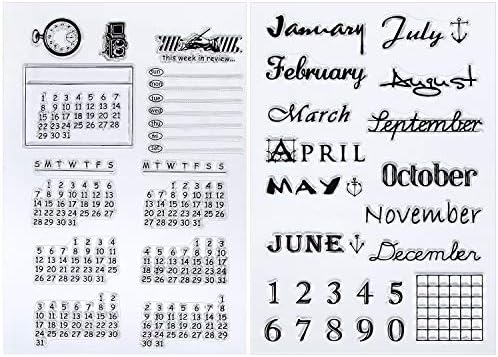 This week in review...
sun
mon
tue
wed
thu
fri
sat
1 2 3 4 5 6 7
8 9 10 11 12 13 14
15 16 17 18 19 20 21
22 23 24 25 26 27 28
29 30 31
S M T W T F S
1 2 3 4 5 6
7 8 9 10 11 12 13
14 15 16 17 18 19 20
21 22 23 24 25 26 27
28 29 30 31
S M T W T F S
1 2 3 4 5
6 7 8 9 10 11 12
13 14 15 16 17 18 19
20 21 22 23 24 25 26
27 28 29 30 31
1 2 3 4
5 6 7 8 9 10 11
12 13 14 15 16 17 18
19 20 21 22 23 24 25
26 27 28 29 30 31
1 2 3
4 5 6 7 8 9 10
11 12 13 14 15 16 17
18 19 20 21 22 23 24
25 26 27 28 29 30 31
1 2
3 4 5 6 7 8 9
10 11 12 13 14 15 16
17 18 19 20 21 22 23
24 25 26 27 28 29 30
31
1
2 3 4 5 6 7 8
9 10 11 12 13 14 15
16 17 18 19 20 21 22
23 24 25 26 27 28 29
30 31
January
February
March
APRIL
MAY
JUNE
July
August
September
October
November
December
1 2 3 4 5
6 7 8 9 0